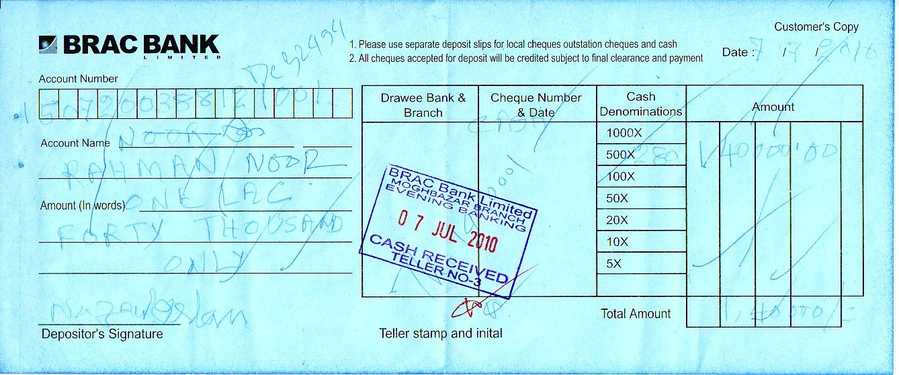 Customer's Copy
BRAC BANK
LIMITED
1. Please use separate deposit slips for local cheques outstation cheques and cash
2. All cheques accepted for deposit will be credited subject to final clearance and payment
Date : 7 / 7 / 2010
Account Number
Account Name NOOR
RAHMAN NOOR
Amount (In words) ONE LAC
FORTY THOUSAND
ONLY
Depositor's Signature
Drawee Bank & Branch
Cheque Number & Date
Cash Denominations
Amount
CASH
1000X
500X 280 140000.00
100X
50X
20X
10X
5X
Total Amount 1,40,000/-
BRAC Bank Limited
MOGHBAZAR BRANCH
EVENING BANKING
07 JUL 2010
CASH RECEIVED
TELLER NO-3
Teller stamp and inital